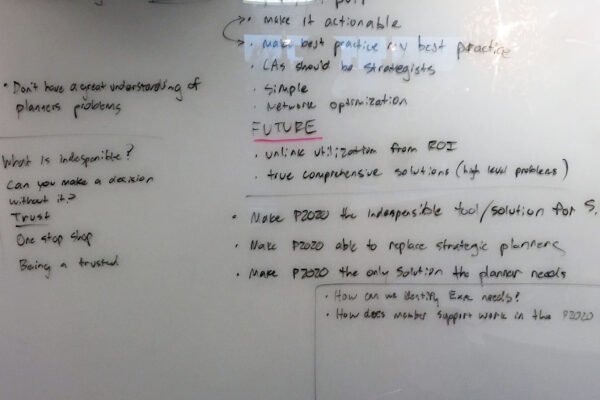 • Don't have a great understanding of
planners problems
What is indespensible?
Can you make a decision
without it?
Trust
One stop shop
Being a trusted
• make it actionable
• Make best practice my best practice
• CAs should be strategists
• simple
• Network optimization
FUTURE
• unlink utilization from ROI
• true comprehensive solutions (high level problems)
• Make P2020 the indespensible tool/solution for S.
• Make P2020 able to replace strategic planners
• Make P2020 the only solution the planner needs
• How can we identify Exec needs?
• How does member support work in the P2020